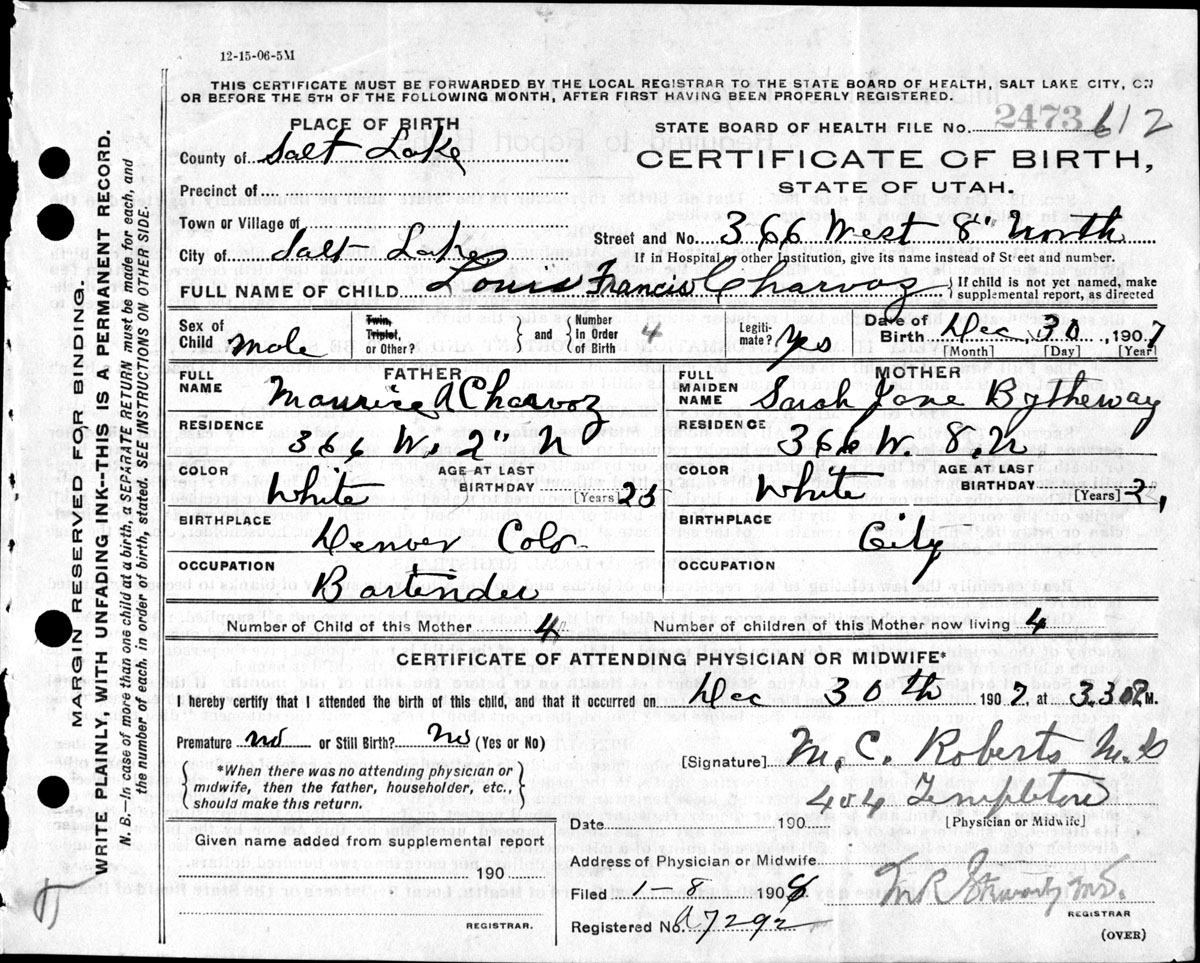 12-15-06-5M
THIS CERTIFICATE MUST BE FORWARDED BY THE LOCAL REGISTRAR TO THE STATE BOARD OF HEALTH, SALT LAKE CITY, ON
OR BEFORE THE 5TH OF THE FOLLOWING MONTH, AFTER FIRST HAVING BEEN PROPERLY REGISTERED.
PLACE OF BIRTH
County of Salt Lake
Precinct of
Town or Village of
City of Salt Lake
STATE BOARD OF HEALTH FILE No. 2473 612
CERTIFICATE OF BIRTH,
STATE OF UTAH.
Street and No. 366 West 8" North
If in Hospital or other Institution, give its name instead of Street and number.
FULL NAME OF CHILD Louis Francis Charvoz { If child is not yet named, make
supplemental report, as directed
Sex of Child Male
Twin, Triplet, or Other? { and } Number In Order of Birth 4
Legitimate? Yes
Date of Birth Dec 30 1907
[Month] [Day] [Year]
FATHER
FULL NAME Maurice A Charvoz
RESIDENCE 366 W. 2" N
COLOR White
AGE AT LAST BIRTHDAY [Years]
BIRTHPLACE Denver Colo
OCCUPATION Bartender
MOTHER
FULL MAIDEN NAME Sarah Jane Bytheway
RESIDENCE 366 W. 8. N
COLOR White
AGE AT LAST BIRTHDAY [Years]
BIRTHPLACE City
OCCUPATION
Number of Child of this Mother 4
Number of children of this Mother now living 4
CERTIFICATE OF ATTENDING PHYSICIAN OR MIDWIFE*
I hereby certify that I attended the birth of this child, and that it occurred on Dec 30th 1907, at 3.30 P.M.
Premature no or Still Birth? no (Yes or No)
{ *When there was no attending physician or
midwife, then the father, householder, etc.,
should make this return. }
[Signature] M. C. Roberts M.D
404 Templeton
[Physician or Midwife]
Date 190
Given name added from supplemental report
190
REGISTRAR.
Address of Physician or Midwife
Filed 1-8 1908
Registered No. A7292
REGISTRAR
(OVER)
MARGIN RESERVED FOR BINDING.
WRITE PLAINLY, WITH UNFADING INK--THIS IS A PERMANENT RECORD.
N. B.—In case of more than one child at a birth, a SEPARATE RETURN must be made for each, and
the number of each, in order of birth, stated. SEE INSTRUCTIONS ON OTHER SIDE.